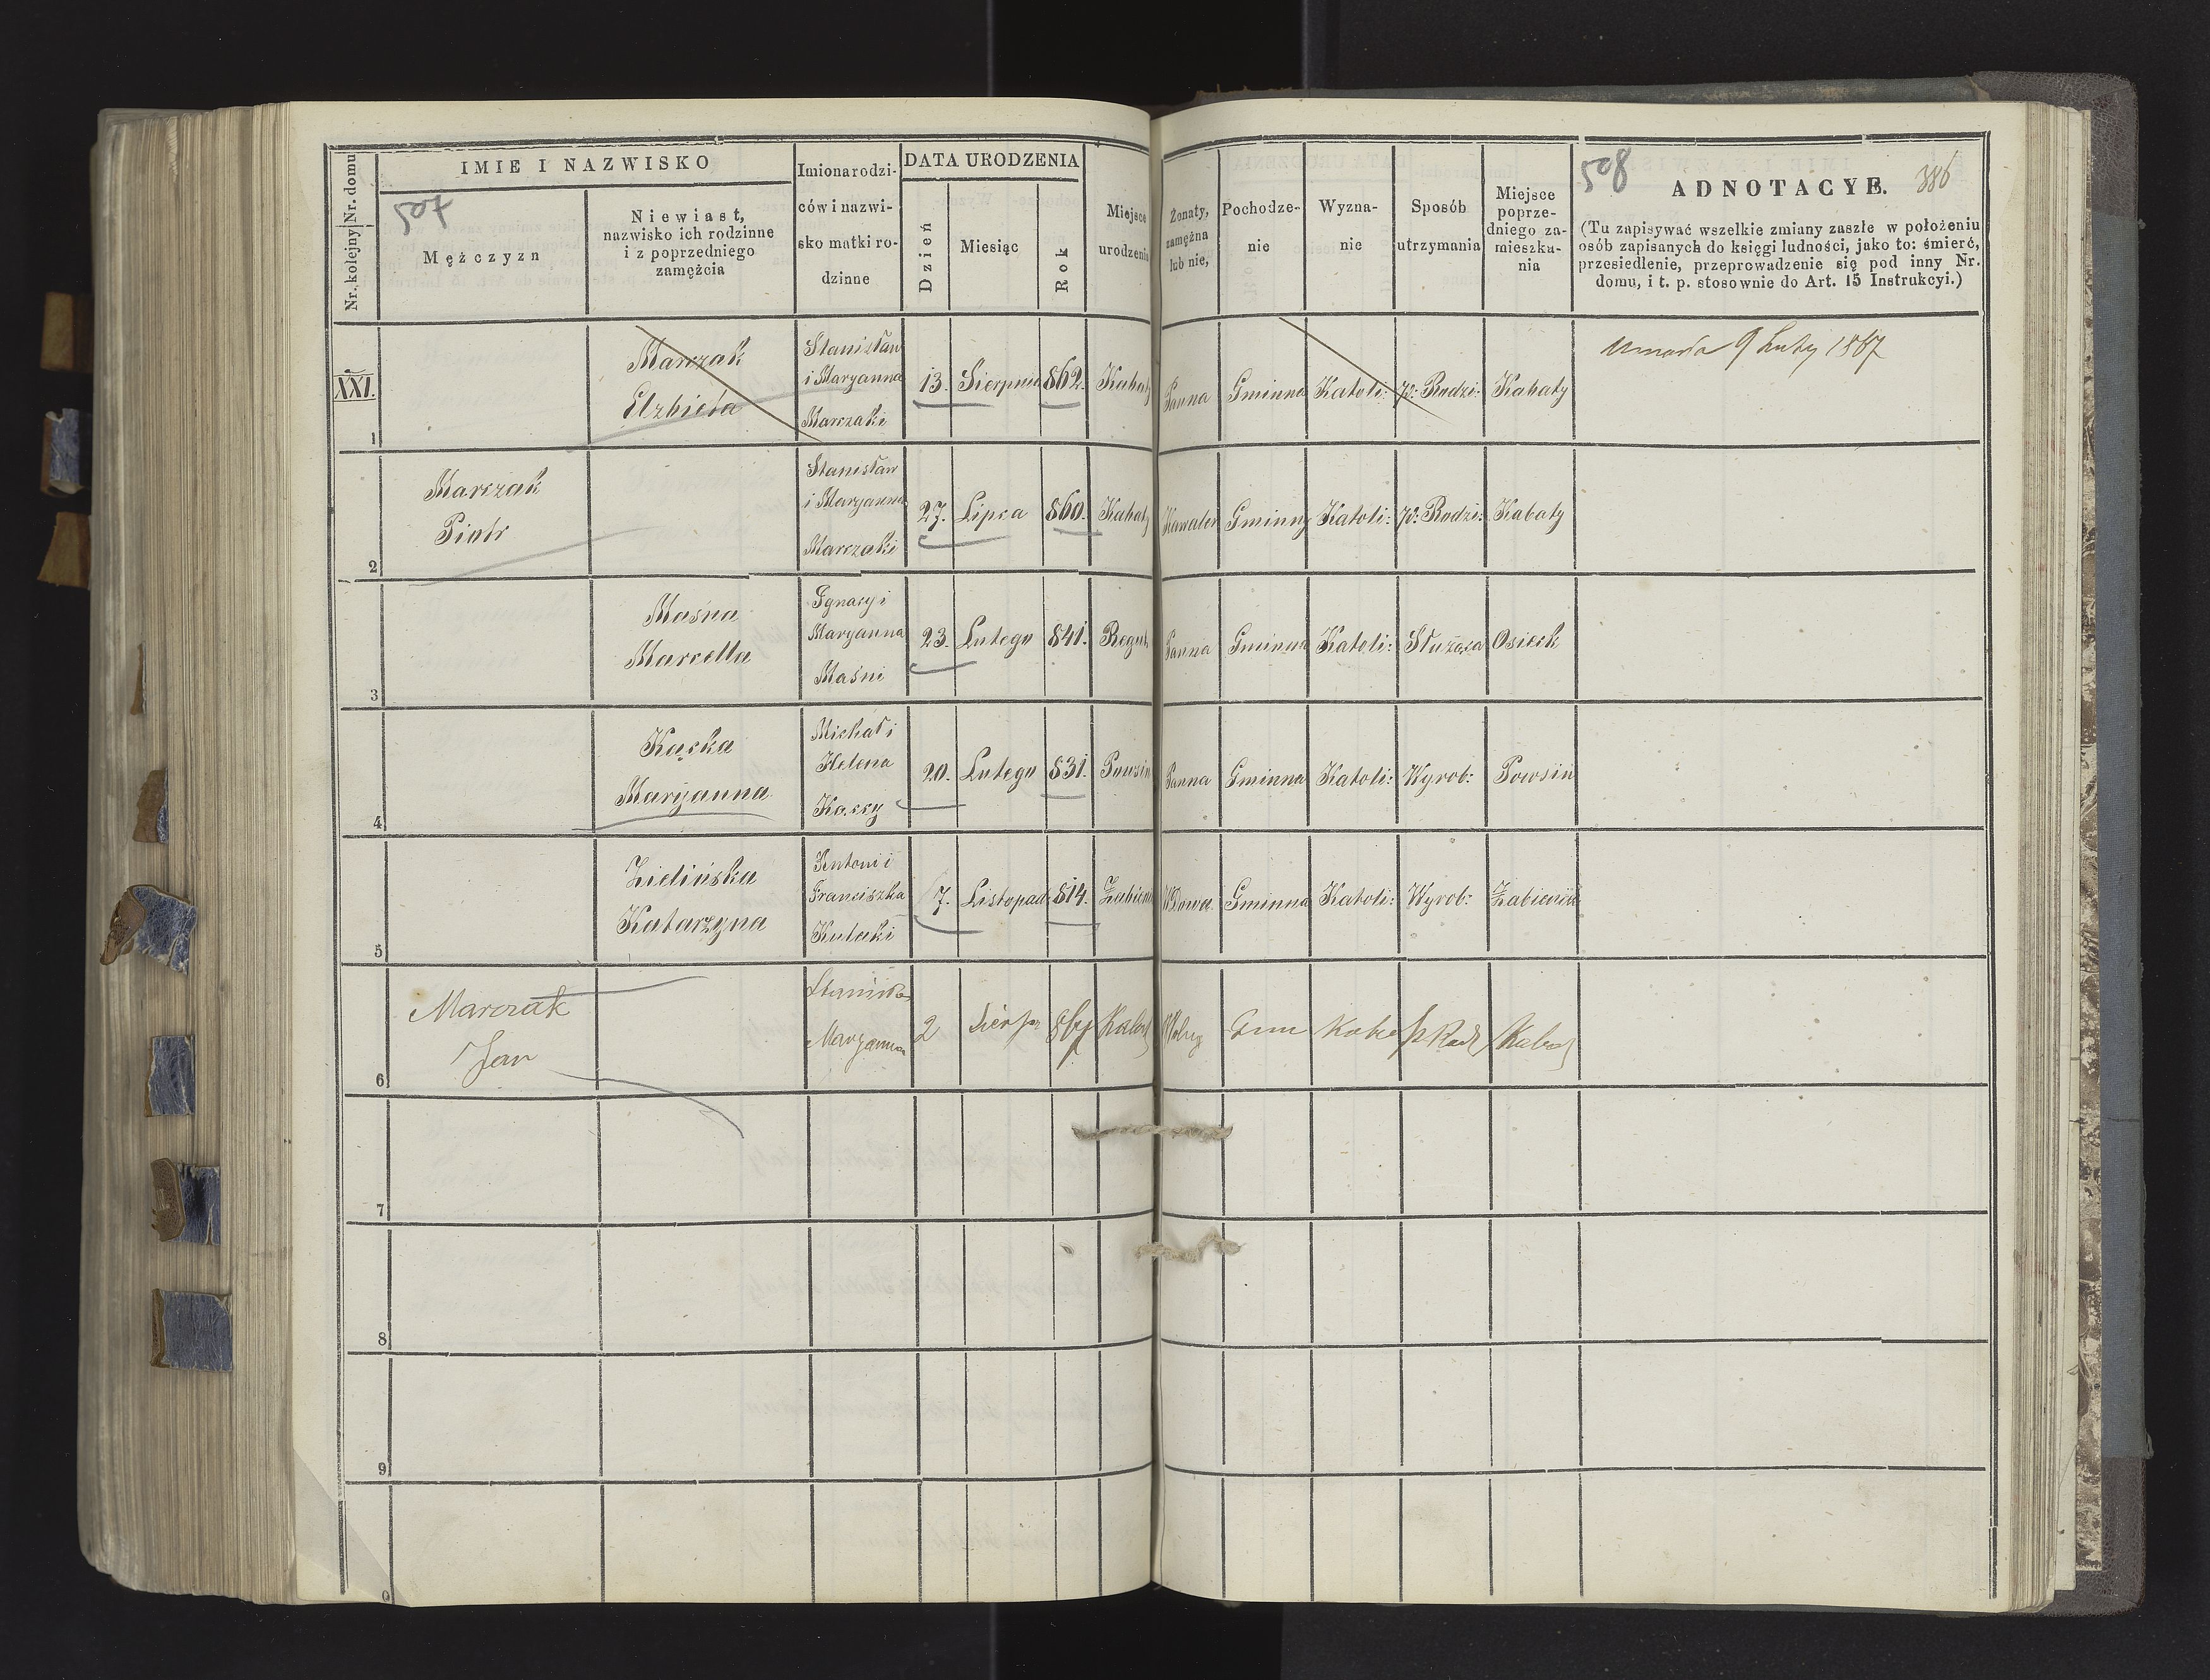 507
508
386
Nr. kolejny Nr. domu
IMIE I NAZWISKO
Mężczyzn
Niewiast,
nazwisko ich rodzinne
i z poprzedniego
zamężcia
Imiona rodzi-
ców i nazwi-
sko matki ro-
dzinne
DATA URODZENIA
Dzień
Miesiąc
Rok
Miejsce
urodzenia
Żonaty,
zamężna
lub nie,
Pochodze-
nie
Wyzna-
nie
Sposób
utrzymania
Miejsce
poprze-
dniego za-
mieszka-
nia
ADNOTACYE.
(Tu zapisywać wszelkie zmiany zaszłe w położeniu
osób zapisanych do księgi ludności, jako to: śmierć,
przesiedlenie, przeprowadzenie się pod inny Nr.
domu, i t. p. stosownie do Art. 15 Instrukcyi.)
XXI.
1
Marczak
Elzbieta
Stanisław
i Maryanna
Marczaki
13. Sierpnia 862. Kabaty
Panna Gminna Katoli: p: Rodzi: Kabaty
Umarła 9 Luty 1867
2
Marczak
Piotr
Stanisław
i Maryanna
Marczaki
27. Lipca 860. Kabaty
Kawaler Gminny Katoli: p: Rodzi: Kabaty
3
Maśna
Marcella
Ignacy i
Maryanna
Maśni
23. Lutego 841.
Panna Gminna Katoli: Służąca Osieck
4
Kącka
Maryanna
Michał i
Helena
Kąccy
20. Lutego 831. Powsin
Panna Gminna Katoli: Wyrob: Powsin
5
Zielińska
Katarzyna
Antoni i
Franciszka
Kulaki
7. Listopad 814.
Wdowa Gminna Katoli: Wyrob:
6
Marczak
Jan
Maryanna
2
Gmin
7
8
9
0